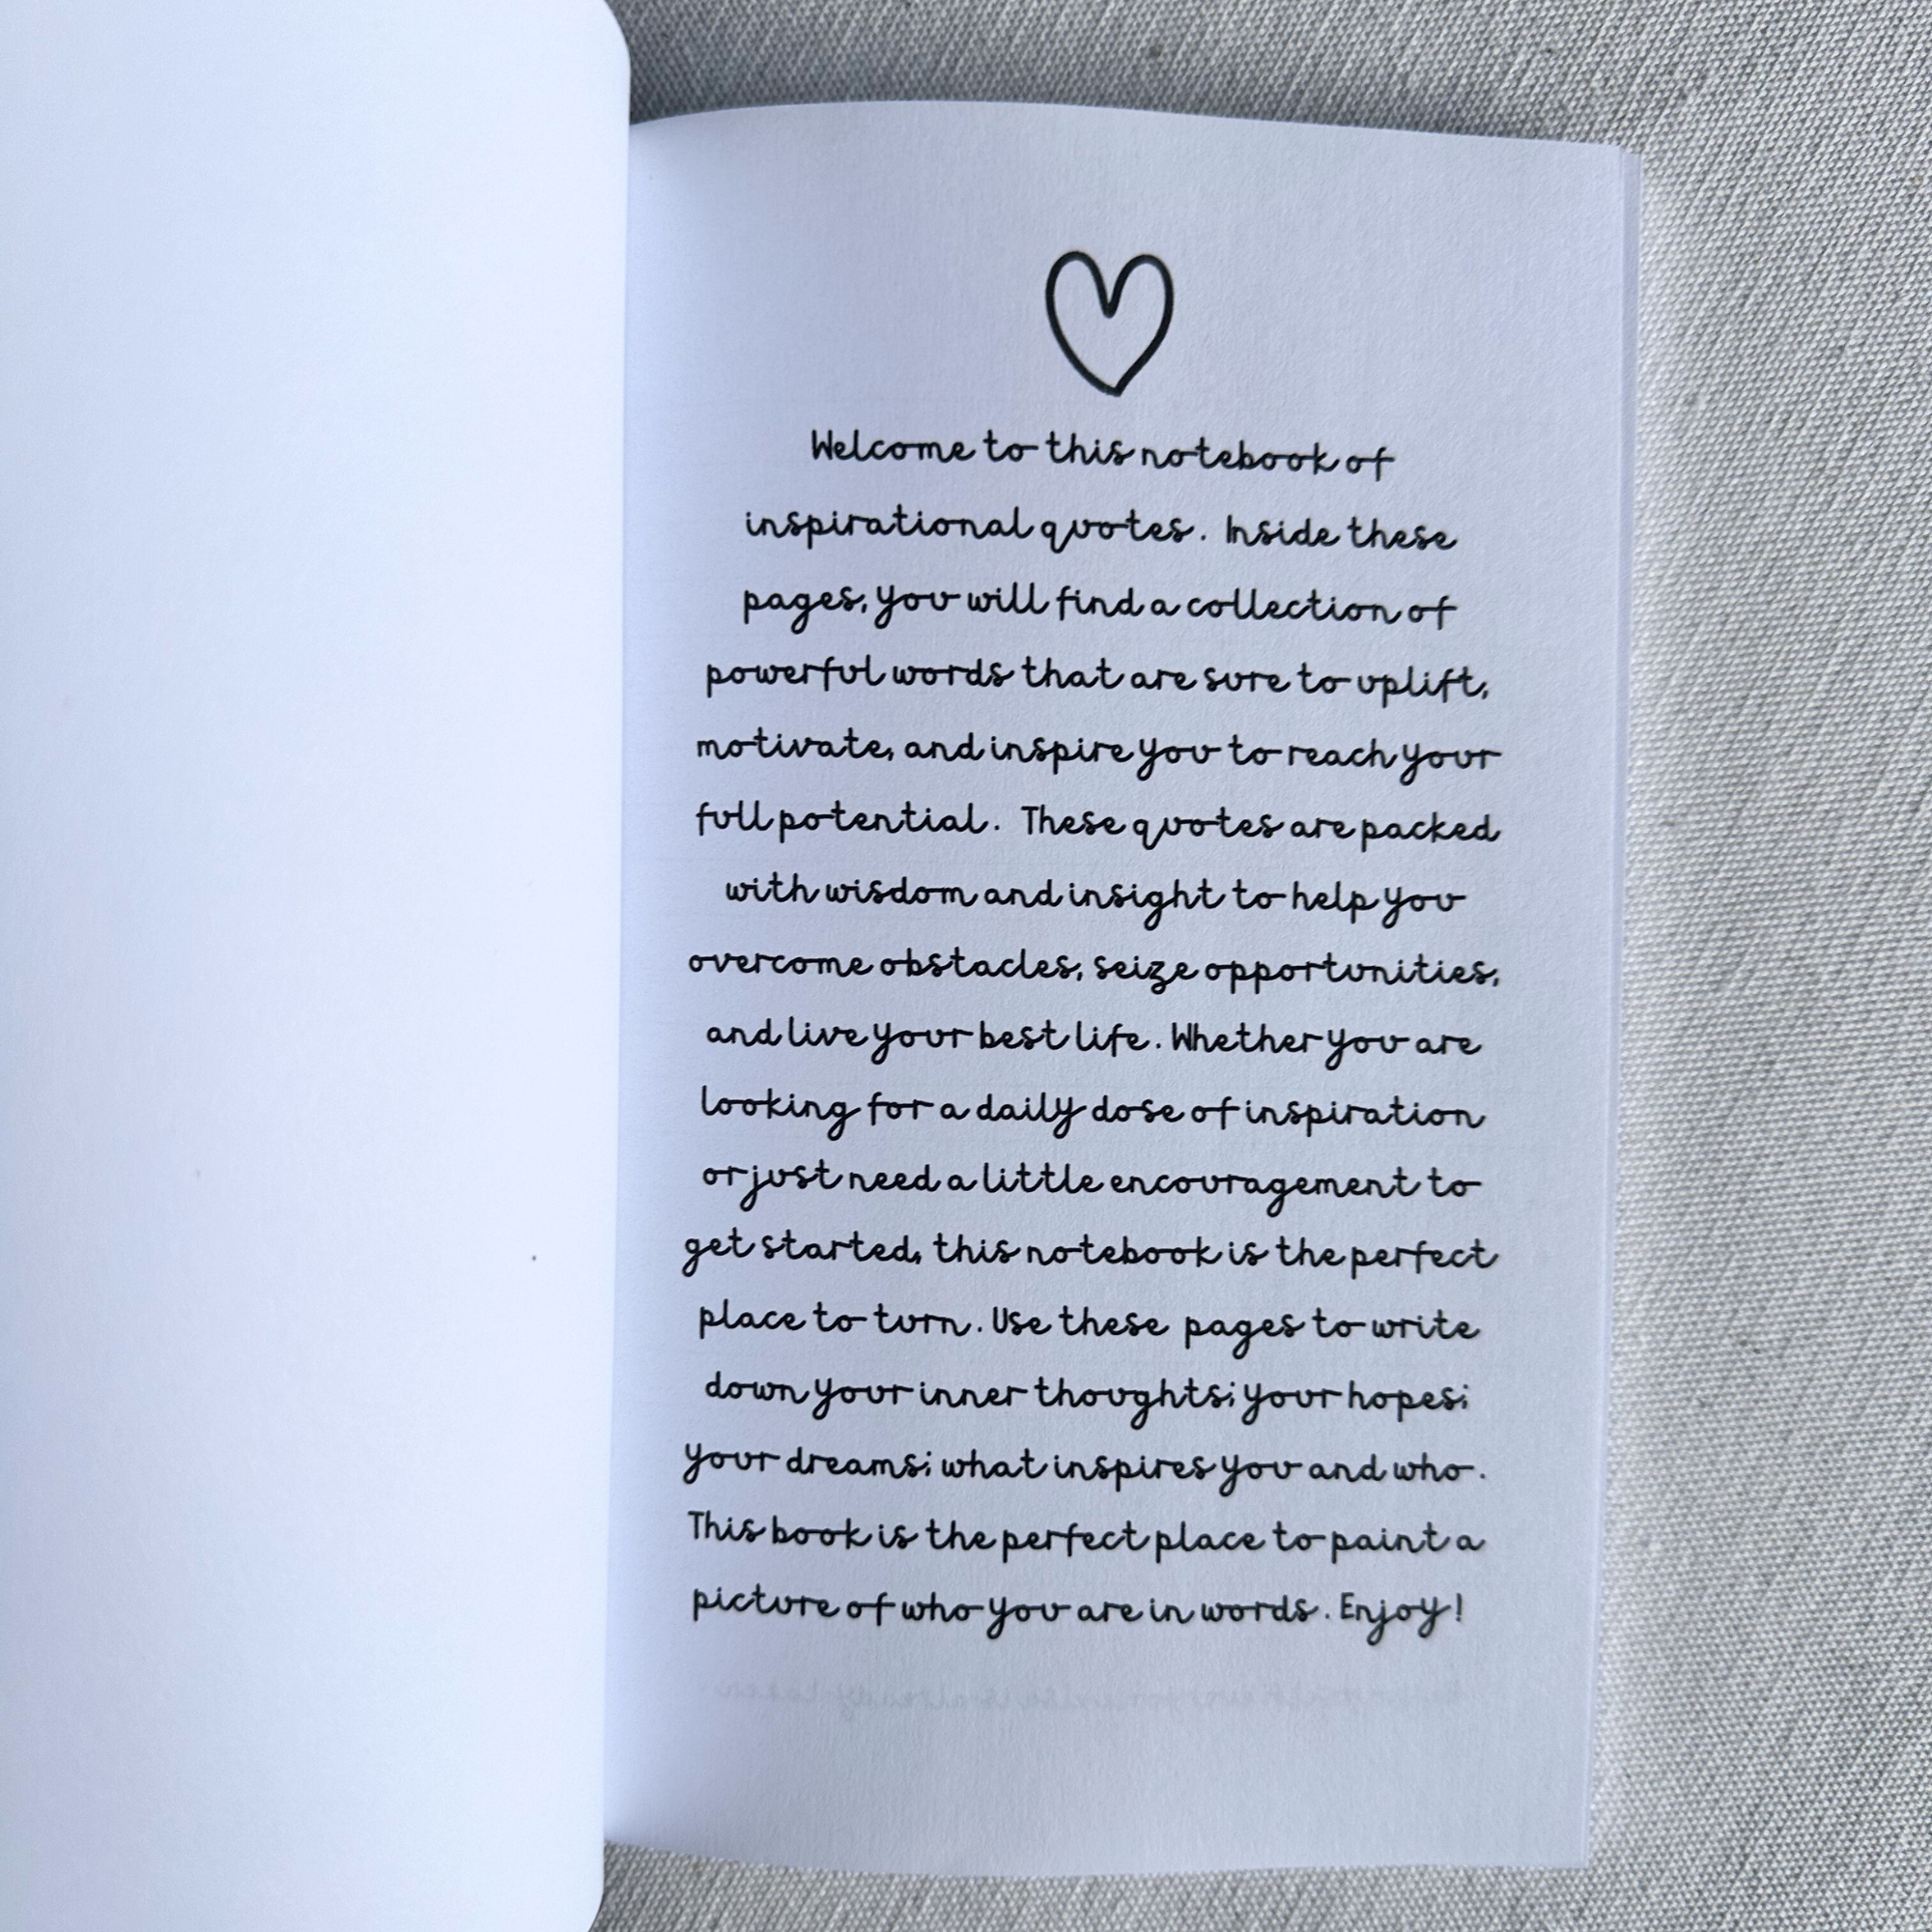 Welcome to this notebook of
inspirational quotes. Inside these
pages, you will find a collection of
powerful words that are sure to uplift,
motivate, and inspire you to reach your
full potential. These quotes are packed
with wisdom and insight to help you
overcome obstacles, seize opportunities,
and live your best life. Whether you are
looking for a daily dose of inspiration
or just need a little encouragement to
get started, this notebook is the perfect
place to turn. Use these pages to write
down your inner thoughts; your hopes;
your dreams; what inspires you and who.
This book is the perfect place to paint a
picture of who you are in words. Enjoy!